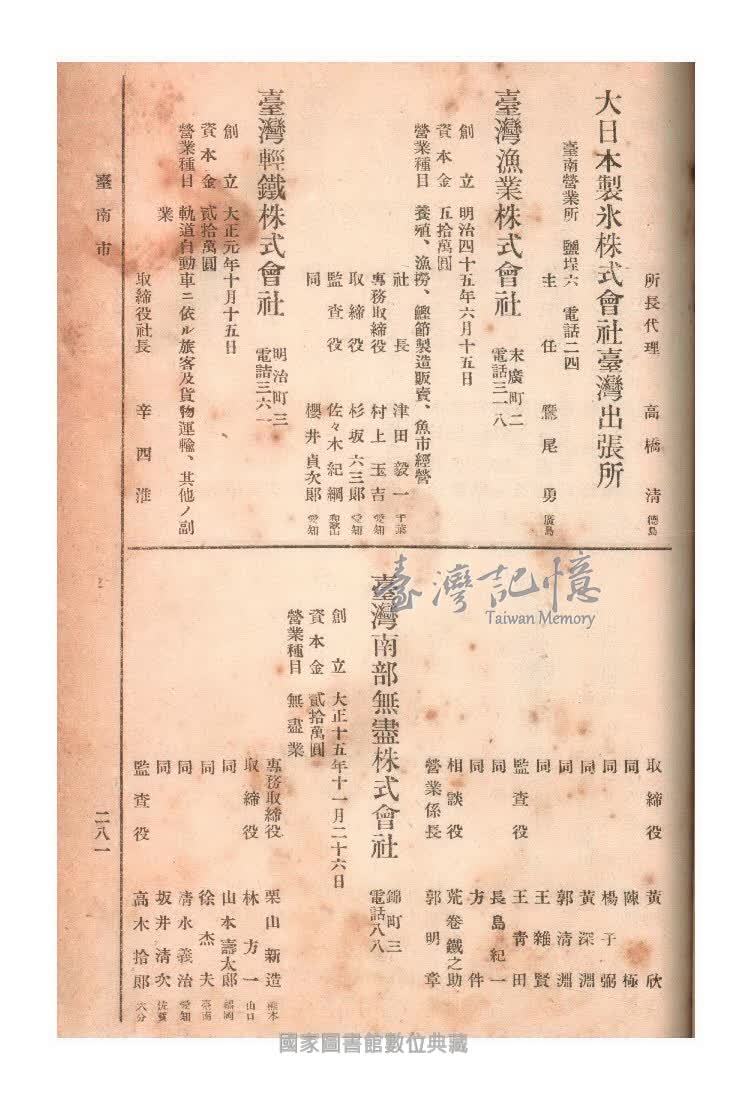 所長代理 高橋清 德島
大日本製氷株式會社臺灣出張所
臺南營業所 鹽埕六 電話二四
主任 鷲尾勇 廣島
臺灣漁業株式會社 末廣町二 電話三一八
創立 明治四十五年六月十五日
資本金 五拾萬圓
營業種目 養殖、漁撈、鰹節製造販賣、魚市經營
社長 津田毅一 千葉
專務取締役 村上玉吉 愛知
取締役 杉坂六三郎 愛知
監査役 佐々木紀綱 和歌山
同 櫻井貞次郎 愛知
臺灣輕鐵株式會社 明治町三 電話三六一
創立 大正元年十月十五日
資本金 貳拾萬圓
營業種目 軌道自動車ニ依ル旅客及貨物運輸、其他ノ副
業
取締役社長 辛西淮
取締役 黃欣
同 陳極
同 楊子弼
同 黃深淵
同 郭清淵
同 王雜賢
監査役 王靑田
同 長島紀一
同 方件
相談役 荒卷鐵之助
營業係長 郭明章
臺灣南部無盡株式會社 錦町三 電話八八
創立 大正十五年十一月二十六日
資本金 貳拾萬圓
營業種目 無盡業
專務取締役 栗山新造 熊本
取締役 林方一 山口
同 山本壽太郎 福岡
同 徐杰夫 臺南
同 淸永義治 愛知
同 坂井清次 佐賀
監査役 高木拾郎 大分
臺南市
二八一
臺灣記憶
Taiwan Memory
國家圖書館數位典藏